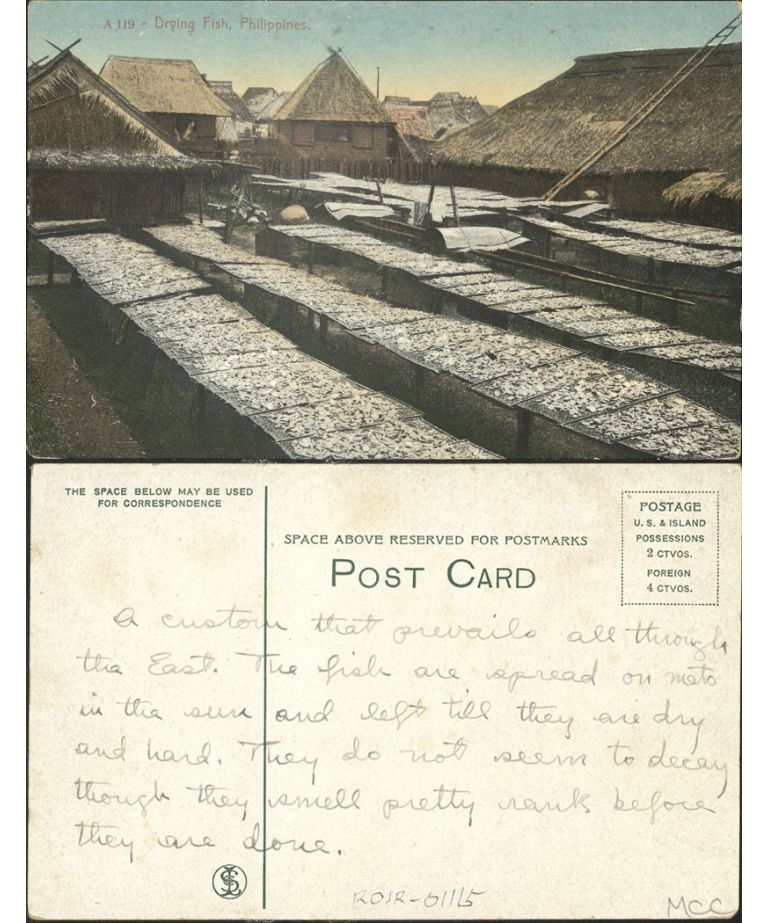 A 119 - Drying Fish, Philippines.
THE SPACE BELOW MAY BE USED
FOR CORRESPONDENCE
SPACE ABOVE RESERVED FOR POSTMARKS
POST CARD
POSTAGE
U. S. & ISLAND
POSSESSIONS
2 CTVOS.
FOREIGN
4 CTVOS.
A custom that prevails all through
the East. The fish are spread on mats
in the sun and left till they are dry
and hard. They do not seem to decay
though they smell pretty rank before
they are done.
MCC